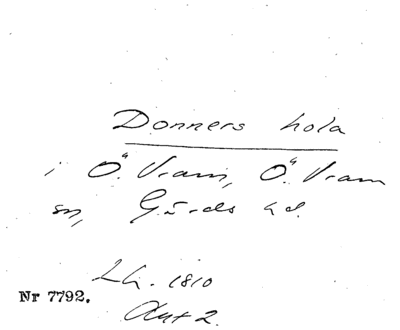 Donners hola
i Ö. Vram, Ö. Vram
sn, Gärds hd.
Lh. 1810
Akt 2.
Nr 7792.